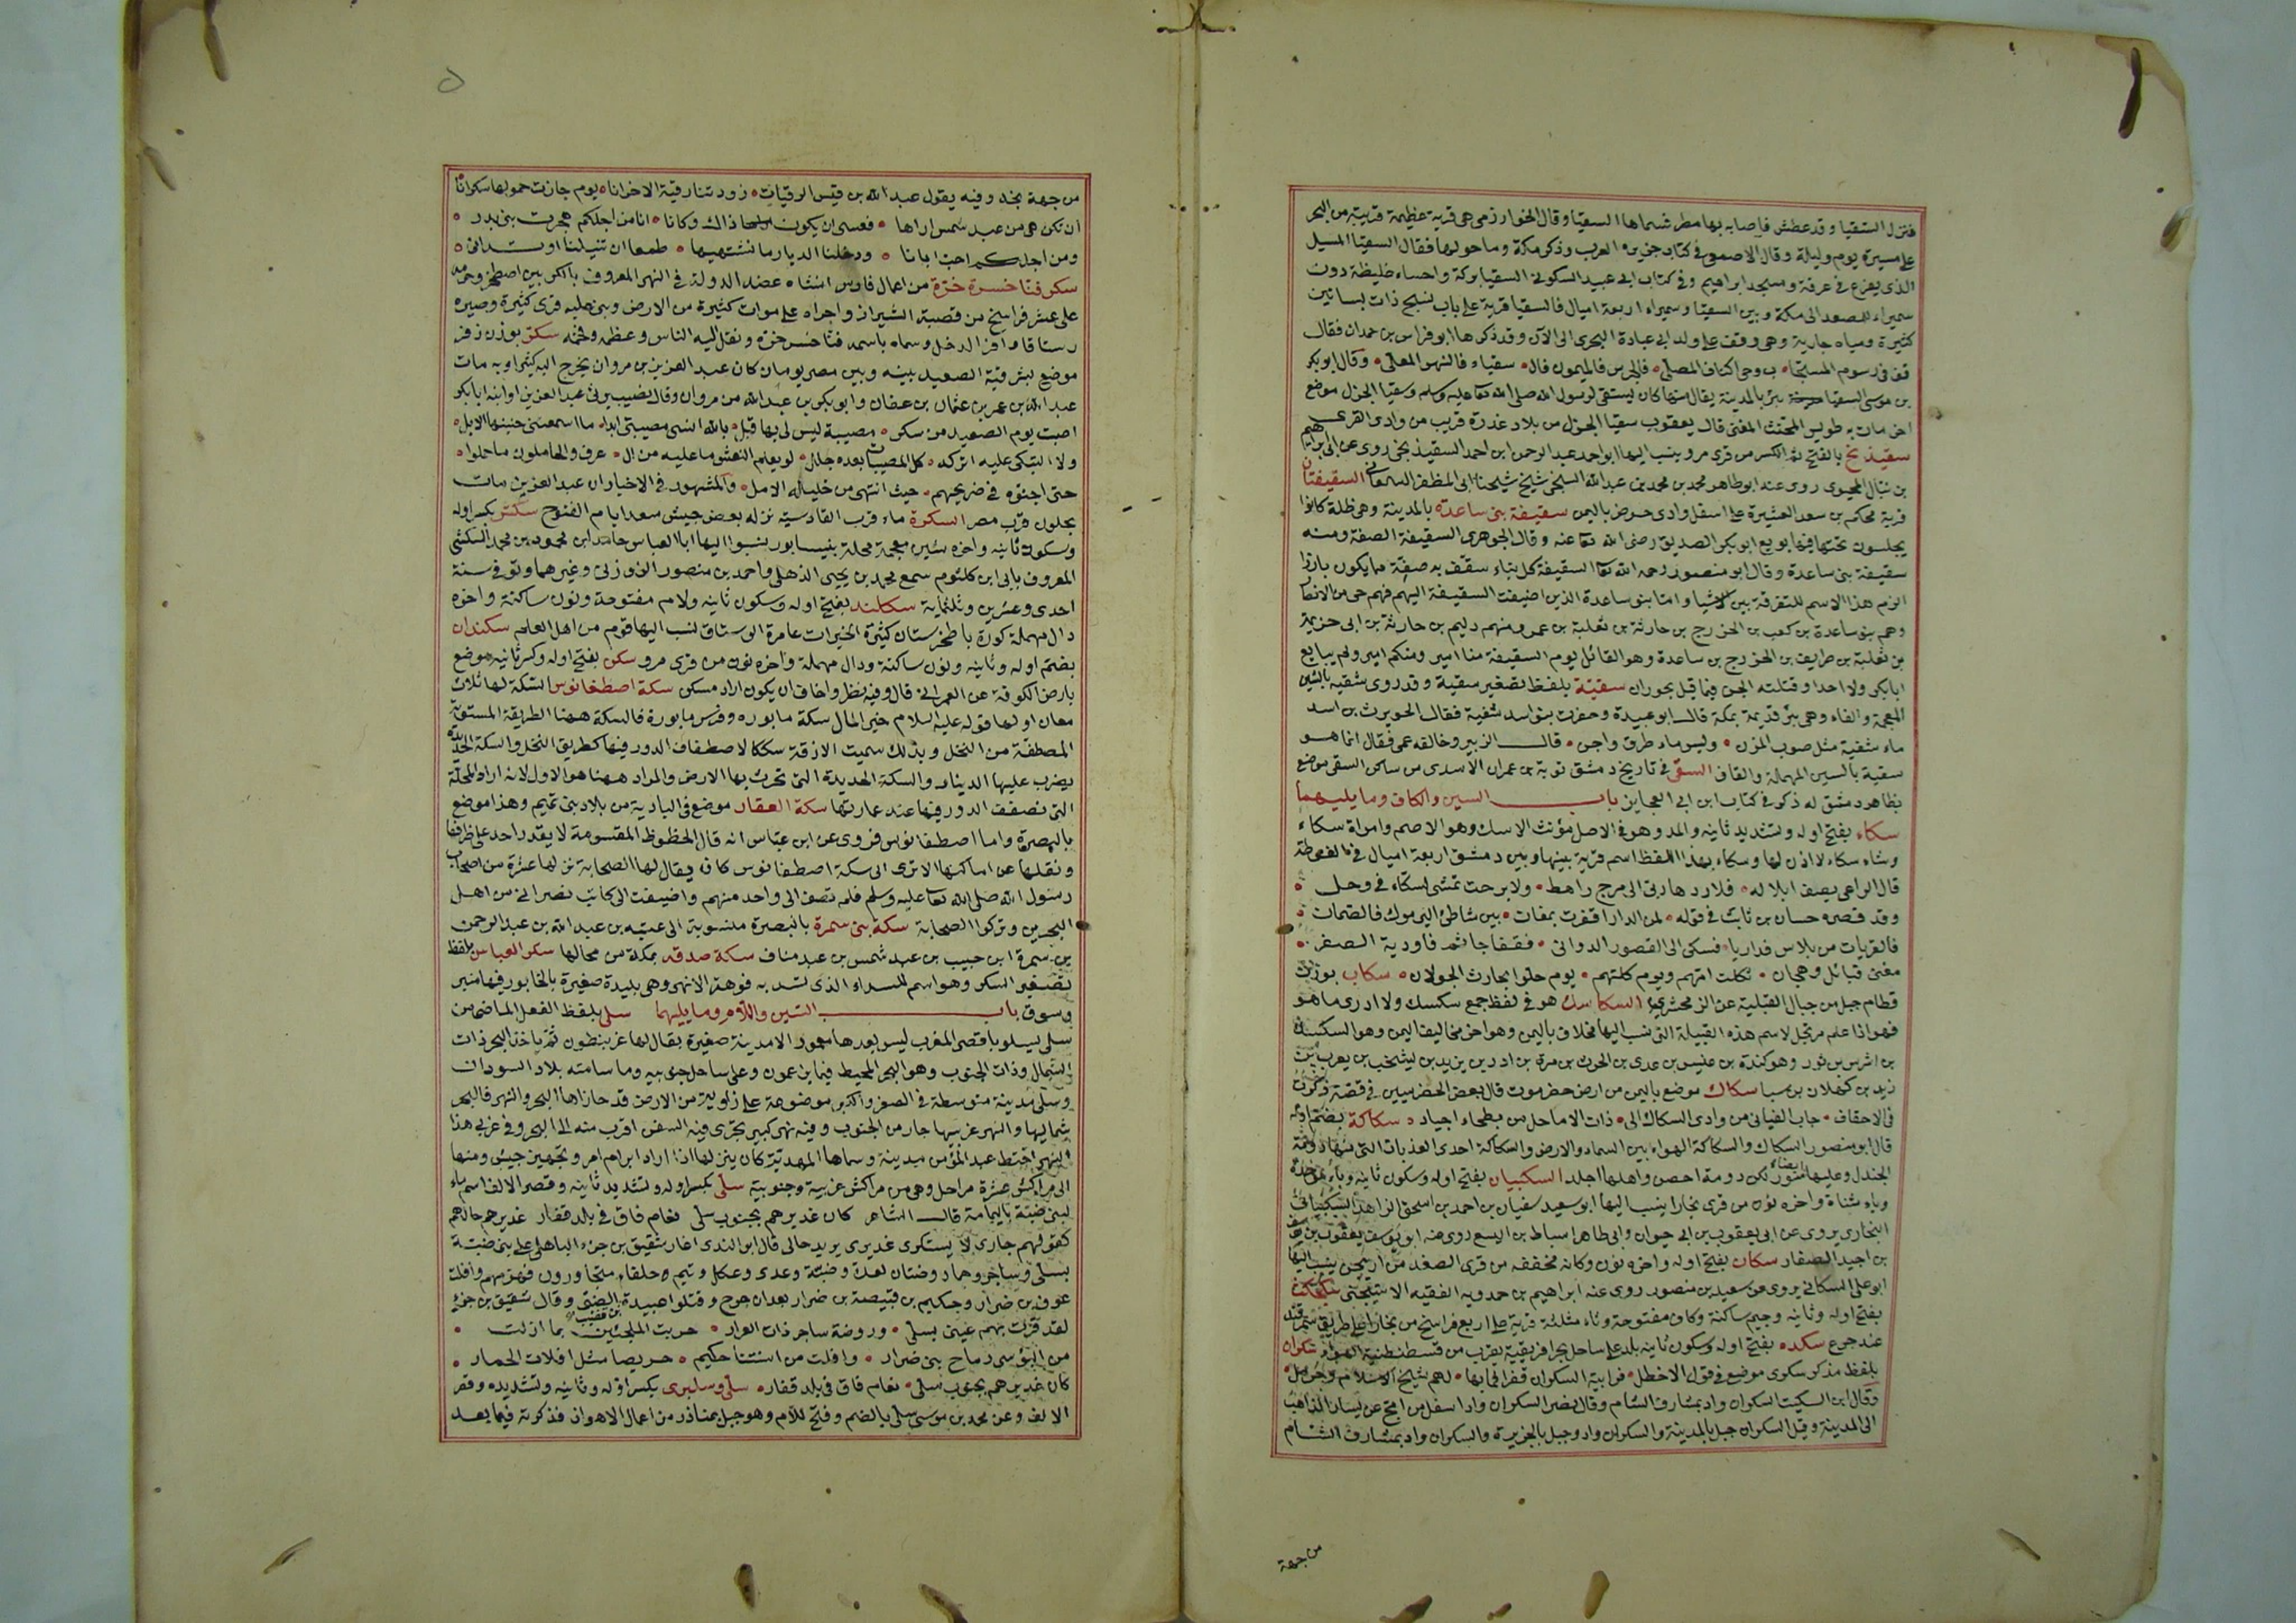 فنزل السقيا وقد عطش فاصابه بها مطر فسماها السقيا وقال الخوارزمى هى قرية عظيمة قريبة من البحر
على مسيرة يوم وليلة وقال الاصمعى فى كتاب جزيرة العرب وذكر مكة وما حولها فقال السقيا المسيل
الذى يفرغ فى عرفة ومسجد ابراهيم وفى كتاب ابى عبيد السكونى السقيا بركة واحساء غليظة دون
سميراء للمصعد الى مكة وبين السقيا وسميراء اربعة اميال فالسقيا قرية على باب منبج ذات بساتين
كثيرة ومياه جارية وهى وقف على ولد ابى عبادة البحترى الى الآن وقد ذكرها ابو فراس بن حمدان فقال
قف فى رسوم المستجاب وحى اكناف المصلى فالجرس فالميمون فال سقياء فالنهر المعلى وقال ابو بكر
بن موسى السقيا بئر بالمدينة يقال منها كان يستقى لرسول الله صلى الله تعا عليه وسلم وسقيا الجزل موضع
اخر مات به طويس المخنث المغنى قال يعقوب سقيا الجزل من بلاد عذرة قريب من وادى القرى
سقيذنج بالفتح ثم الكسر من قرى مرو ينسب اليها ابو احمد عبد الرحمن ابن احمد السقيذنجى روى عن ابراهيم
روى عنه ابو طاهر محمد بن محمد بن عبد الله السنجى شيخ شيخنا ابى المظفر السمعانى السقيفتان
قرية محاكم بن سعد العشيرة على اسفل وادى حرض باليمن سقيفة بنى ساعدة بالمدينة وهى ظلة كانوا
يجلسون تحتها فيها بويع ابو بكر الصديق رضى الله تعا عنه وقال الجوهرى السقيفة الصفة ومنه
سقيفة بنى ساعدة وقال ابو منصور رحمه الله تعا السقيفة كل بناء سقف به صفة مما يكون بارزا
الزم هذا الاسم للتفرقة بين الاشيا واما بنو ساعدة الذين اضيفت السقيفة اليهم فهم حى من الانصار
وهم بنو ساعدة بن كعب بن الخزرج بن حارثة بن ثعلبة بن عمرو منهم دليم بن حارثة بن ابى حزيمة
بن ثعلبة بن طريف بن الخزرج بن ساعدة وهو القائل يوم السقيفة منا امير ومنكم امير ولم يبايع
ابا بكر ولا احدا وقتلته الجن فيما قيل بحوران سقية بلفظ تصغير سقية وقد روى شفيه بالشين
المعجمة والفاء وهى بئر قديمة بمكة قال ابو عبيدة وحفرت بنو اسد شفية فقال الحويرث بن اسد
ماء شفية مثل صوب المزن وليس ماء طرق واجن قال الزبير وخالفه عمى فقال انما هو
سقية بالسين المهملة والقاف السقى فى تاريخ دمشق توبة بن عمران الاسدى من ساكنى السقى موضع
بظاهر دمشق له ذكر فى كتاب ابن ابى العجايز باب السين والكاف وما يليهما
سكاء بفتح اوله وتشديد ثانيه والمد وهو فى الاصل مؤنث الاسك وهو الاصم وامراة سكاء
وشاه سكاء لا اذن لها وسكاء بهذا اللفظ اسم قرية بينها وبين دمشق اربعة اميال فى الغوطة
قال الراعى يصف ابلا له فلا ردها ربى الى مرج راهط ولا برحت تمشى بسكاء فى وحل
وقد قصره حسان بن ثابت فى قوله لمن الدار اقفرت بمعان بين شاطئ اليرموك فالصمان
فالقريات من بلاس فداريا فسكى الى القصور الدوانى فقفا جاسم فاودية الصفر
مغنى قبائل وهجان ثكلت امهم ويوم كلتهم يوم حلوا بحارث الجولان سكاب بوزن
قطام جبل من جبال القبلية عن الزمخشرى السكاسك هو فى لفظ جمع سكسك ولا ادرى ما هو
فهو اذا علم مرتجل لاسم هذه القبيلة التى نسب اليها مخلاف باليمن وهو اخر مخاليف اليمن وهو السكسك
بن اشرس بن ثور وهو كندة بن عفيس بن عدى بن الحرث بن مرة بن ادد بن زيد بن يشجب بن يعرب بن
زيد بن كهلان بن سبا سكاك موضع باليمن من ارض حضرموت قال بعض الحضرميين فى قصة ذكرت
فى الاحقاف جاب الفيافى من وادى السكاك الى ذات الاماحل من بطحاء اجياد سكاكة بضم اوله
قال ابو منصور السكاك والسكاكة الهواء بين السماء والارض والسكاكة احدى القريات التى منها دومة
الجندل وعليها ايضاء سور لكن دومة احصن واهلها اجلد السكبيان بفتح اوله وسكون ثانيه وباء موحدة
وياء مثناة واخره نون من قرى بخارا ينسب اليها ابو سعيد سفيان بن احمد بن اسحق الزاهد السكبيانى
البخارى يروى عن ابى يعقوب بن ابى حيوان وابى طاهر اسباط بن اليسع روى عنه ابو يوسف يعقوب بن يوسف
بن اجيد الصفار سكان بفتح اوله واخره نون وكافه مخففه من قرى الصغد من اربنجن ينسب اليها
ابو على السكانى يروى عن سعيد بن منصور روى عنه ابراهيم بن حمدويه الفقيه الاشتيخنى سكجكث
بفتح اوله وثانيه وجيم ساكنة وكاف مفتوحة وثاء مثلثة قرية على اربع فراسخ من بخارا على طريق سمرقند
عند جرغ سكده بفتح اوله وسكون ثانيه بلد على ساحل بحر افريقية بقرب من قسطنطينية الهواء سكران
بلفظ مذكر سكرى موضع فى قول الاخطل فرابية السكران قفر فما بها لهم شبح الا سلام وحرمل
وقال ابن السكيت السكران واد بمشارف الشام وقال نصر السكران واد اسفل من امج عن يسار الذاهب
الى المدينة وقيل السكران جبل بالمدينة والسكران واد وجبل بالجزيرة والسكران واد بمشارف الشام
من جهة
من جهة نجد وفيه يقول عبد الله بن قيس الرقيات زودتنا رقية الاحزانا يوم جازت حمولها سكرانا
ان تكن هى من عبد شمس اراها فعسى ان يكون ذاك وكانا انا من اجلكم هجرت بنى بدر
ومن اجلكم احب ابانا ودخلنا الديار ما نشتهيها طمعا ان تنيلنا او تدانى
سكر فنا خسره خره من اعمال فارس انشاه عضد الدولة فى النهر المعروف بالكر بين اصطخر وخرمه
على عشر فراسخ من قصبة الشيراز واجراه على موات كثيرة من الارض وبنى عليه قرى كثيرة وصيره
رستاقا وافر الدخل وسماه باسمه فنا خسر خره ونقل اليه الناس وعظمه وفخمه سكر بوزن زفر
موضع بشرقية الصعيد بينه وبين مصر يومان كان عبد العزيز بن مروان يخرج اليه كثيرا وبه مات
عبد الله بن عمر بن عثمان بن عفان وابو بكر بن عبد الله من مروان وقال نصيب يرثى عبد العزيز او ابنه ابا بكر
اصبت يوم الصعيد من سكر مصيبة ليس لى بها قبل بالله انسى مصيبتى ابدا ما اسمعتنى حنينها الابل
ولا التبكى عليه اتركه كل المصيبات بعده جلل لو يعلم النعش ما عليه من ال عرف والحاملون ما حملوا
حتى اجنوه فى ضريحهم حيث انتهى من خليله الامل والمشهور فى الاخبار ان عبد العزيز مات
بحلوان قرب مصر السكرة ماء قرب القادسية نزله بعض جيش سعد ايام الفتوح سكش بكسر اوله
وسكون ثانيه واخره شين معجمة محلة بنيسابور ينسبوا اليها ابا العباس حامد ابن محمود بن محمد السكشى
المعروف بابى ابن كلثوم سمع محمد بن يحيى الذهلى واحمد بن منصور الزوزنى وغيرهما وتوفى سنة
احدى وعشرين وثلثماية سكلكند بفتح اوله وسكون ثانيه ولام مفتوحة ونون ساكنة واخره
دال مهملة كورة بطخرستان كثيرة الخيرات عامرة الرستاق نسب اليها قوم من اهل العلم سكندان
بضم اوله وثانيه ونون ساكنة ودال مهملة واخره نون من قرى مرو سكن بفتح اوله وكسر ثانيه موضع
بارض الكوفة عن العمرانى قال وفيه نظر واخاف ان يكون اراد مسكن سكة اصطفانوس السكة لها ثلاث
معان اولها قوله عليه السلام خير المال سكة مابوره وفرس مابورة فالسكة ههنا الطريقة المستوية
المصطفة من النخل وبذلك سميت الازقة سككا لاصطفاف الدور فيها كطريق النخل والسكة الحديدة
يضرب عليها الدينار والسكة الحديدة التى تحرث بها الارض والمراد ههنا هو الاول لانه اراد المحلة
التى تصفف الدور فيها عند عمارتها سكة العقار موضع فى البادية من بلاد بنى تميم وهذا موضع
بالبصرة واما اصطفانوس فروى عن ابن عباس انه قال الحظوظ المقسومة لا يقدر احد على طرفها
ونقلها عن اماكنها الا ترى الى سكة اصطفانوس كان يقال لها الصحابة نزلها عشرة من اصحاب
رسول الله صلى الله تعا عليه وسلم فلم تضف الى واحد منهم واضيفت الى كاتب نصرانى من اهل
البحرين وتركوا الصحابة سكة بنى سمرة بالبصرة منسوبة الى عتبه بن عبد الله بن عبد الرحمن
بن سمرة ابن حبيب بن عبد شمس بن عبد مناف سكة صدقه بمكة من محالها سكير العباس بلفظ
تصغير السكر وهو اسم للسداء الذى تسد به فوهة الانهر وهى بليدة صغيرة بالخابور فيها منبر
وسوق باب السين واللام وما يليهما سلى بلفظ الفعل الماضى من
سلى يسلو باقصى المغرب ليس بعدها معمور الا مدينة صغيرة يقال لها غرنيطون ثم ياخذ البحر ذات
الشمال وذات الجنوب وهو البحر المحيط فيما يزعمون وعلى ساحل جنوبيه وما سامته بلاد السودان
وسلى مدينة متوسطة فى الصغر والكبر موضوعة على زاوية من الارض قد حازاها البحر والنهر فالبحر
شماليها والنهر غربيها جار من الجنوب وفيه نهر كبير تجرى فيه السفن اقرب منه الى البحر وفى غربى هذا
النهر اختط عبد المؤمن مدينة وسماها المهدية كان ينزلها اذا اراد ابرام امر وتجهيز جيش ومنها
الى مراكش عشرة مراحل وهى من مراكش غربية وجنوبية سلى بكسر اوله وتشديد ثانيه وقصر الالف اسم ماء
لبنى ضبة باليمامة قال الشاعر كان غديرهم بجنوب سلى نعام فاق فى بلد قفار غديرهم حالهم
كقولهم جارى لا يستكرى غديرى يريد حالى قال ابو الندى اغار شقيق بن جزء الباهلى على بنى ضبة
بسلى وساجر وهما روضتان لعكل وضبة وعدى وعكل وتيم حلفاء متجاورون فهزمهم وافلت
عوف بن ضرار وحكيم بن قبيصة بن ضرار بعد ان جرح وقتلوا عبيدة بن قضيب الضبى وقال شقيق بن جزء
لقد قرت بهم عينى بسلى وروضة ساجر ذات العرار جريت الملجئين بما ازلت
من البؤسى رماح بنى ضرار وافلت من اسنتنا حكيم حريصا مثل افلات الحمار
كان غديرهم بجنوب سلى نعام فاق فى بلد قفار سلى وسلبرى بكسر اوله وثانيه وتشديده وقصر
الالف وعن محمد بن موسى سلى بالضم وفتح للام وهو جبل بمناذر من اعمال الاهواز فذكرته فيما بعد